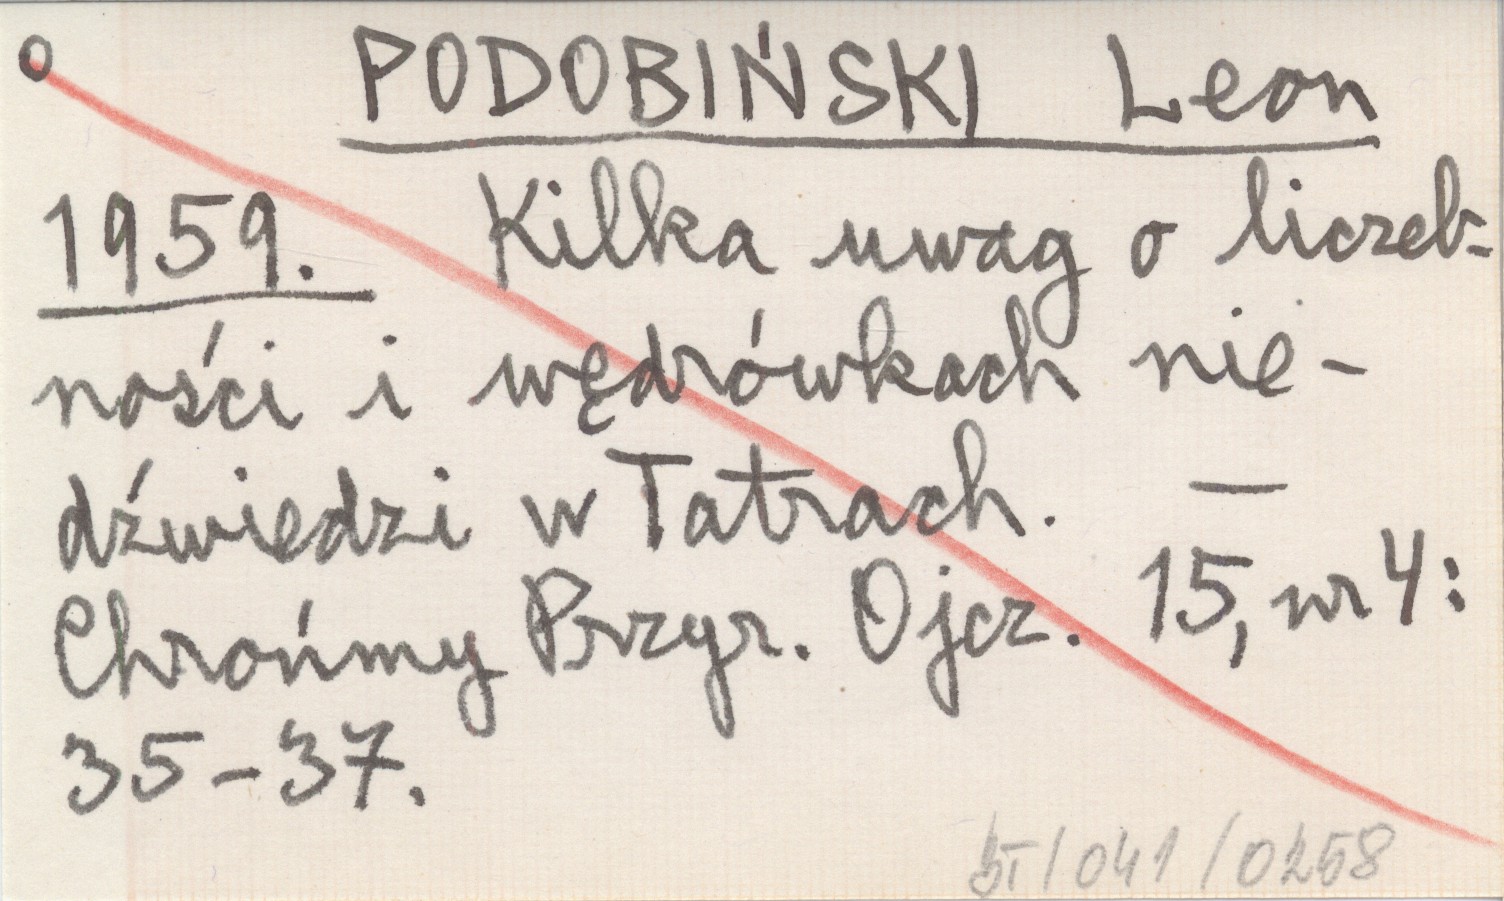 o PODOBIŃSKI Leon
1959. Kilka uwag o liczeb-
ności i wędrówkach nie-
dźwiedzi w Tatrach. —
Chrońmy Przyr. Ojcz. 15, nr 4:
35-37.
/041/0258